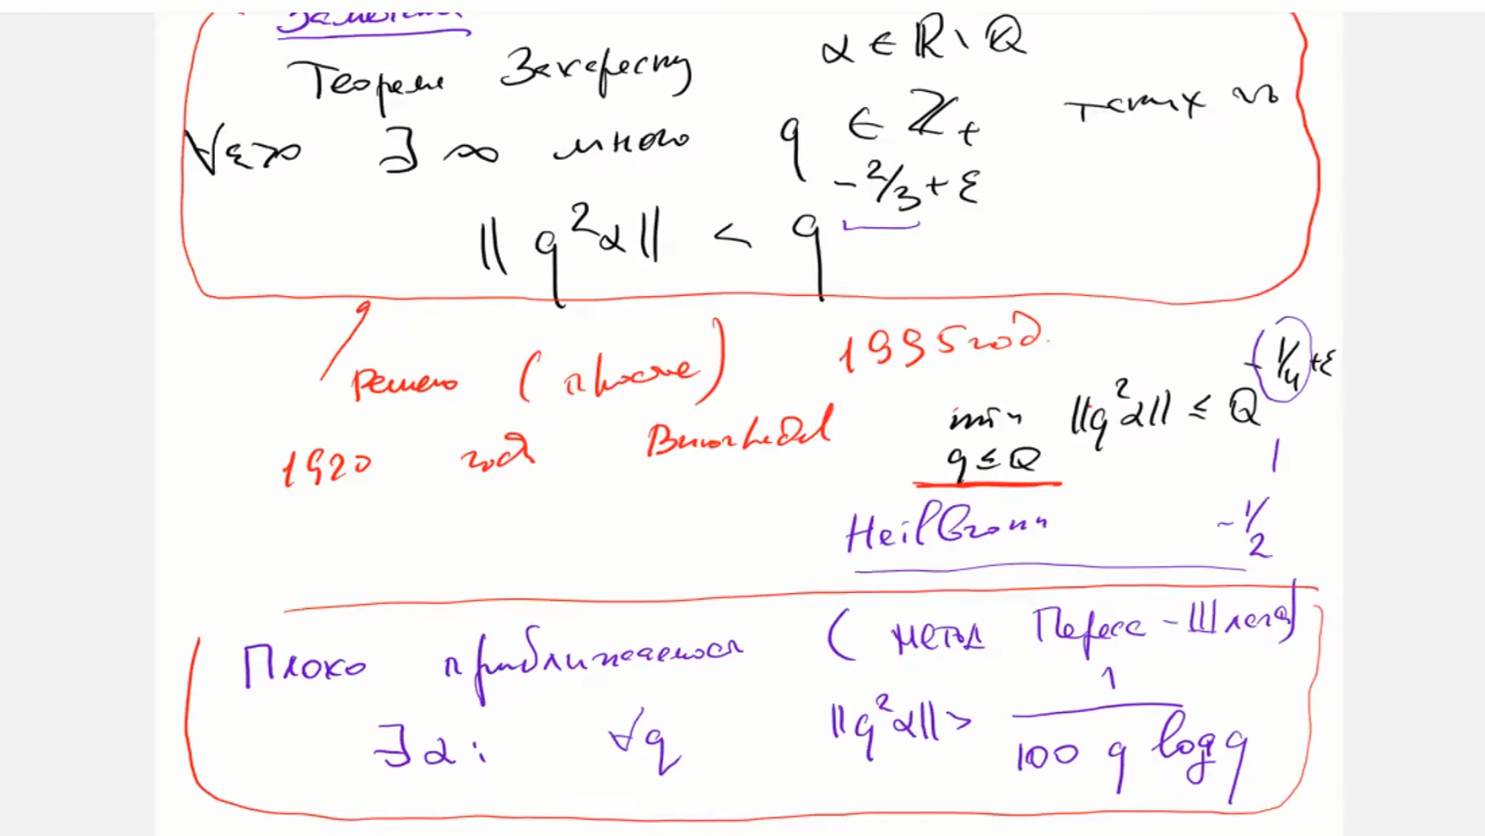 Теорема Захареску α ∈ ℝ \ ℚ
∀ε>0 ∃ ∞ много q ∈ ℤ₊ таких что
||q²α|| < q^(-2/3+ε)
решено (плюсе) 1995 год.
1920 год min q≤Q ||q²α|| ≤ Q^(-1/4+ε)
Heilbronn -1/2
Плохо приближаемость (метод Переса-Шлага)
∃α: ∀q ||q²α|| > 1/(100 q log q)